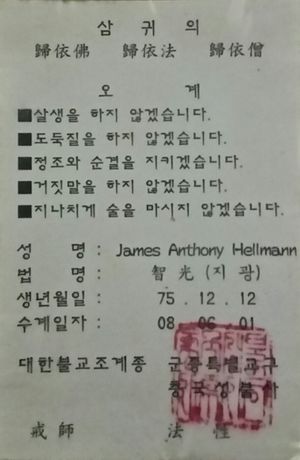 삼 귀 의
歸依佛 歸依法 歸依僧
오 계
■살생을 하지 않겠습니다.
■도둑질을 하지 않겠습니다.
■정조와 순결을 지키겠습니다.
■거짓말을 하지 않겠습니다.
■지나치게 술을 마시지 않겠습니다.
성 명 : James Anthony Hellmann
법 명 : 智光 (지 광)
생년월일 : 75 . 12 . 12
수계일자 : 08 . 06 . 01
대한불교조계종 군종특별교구
호국성불사
戒師 法